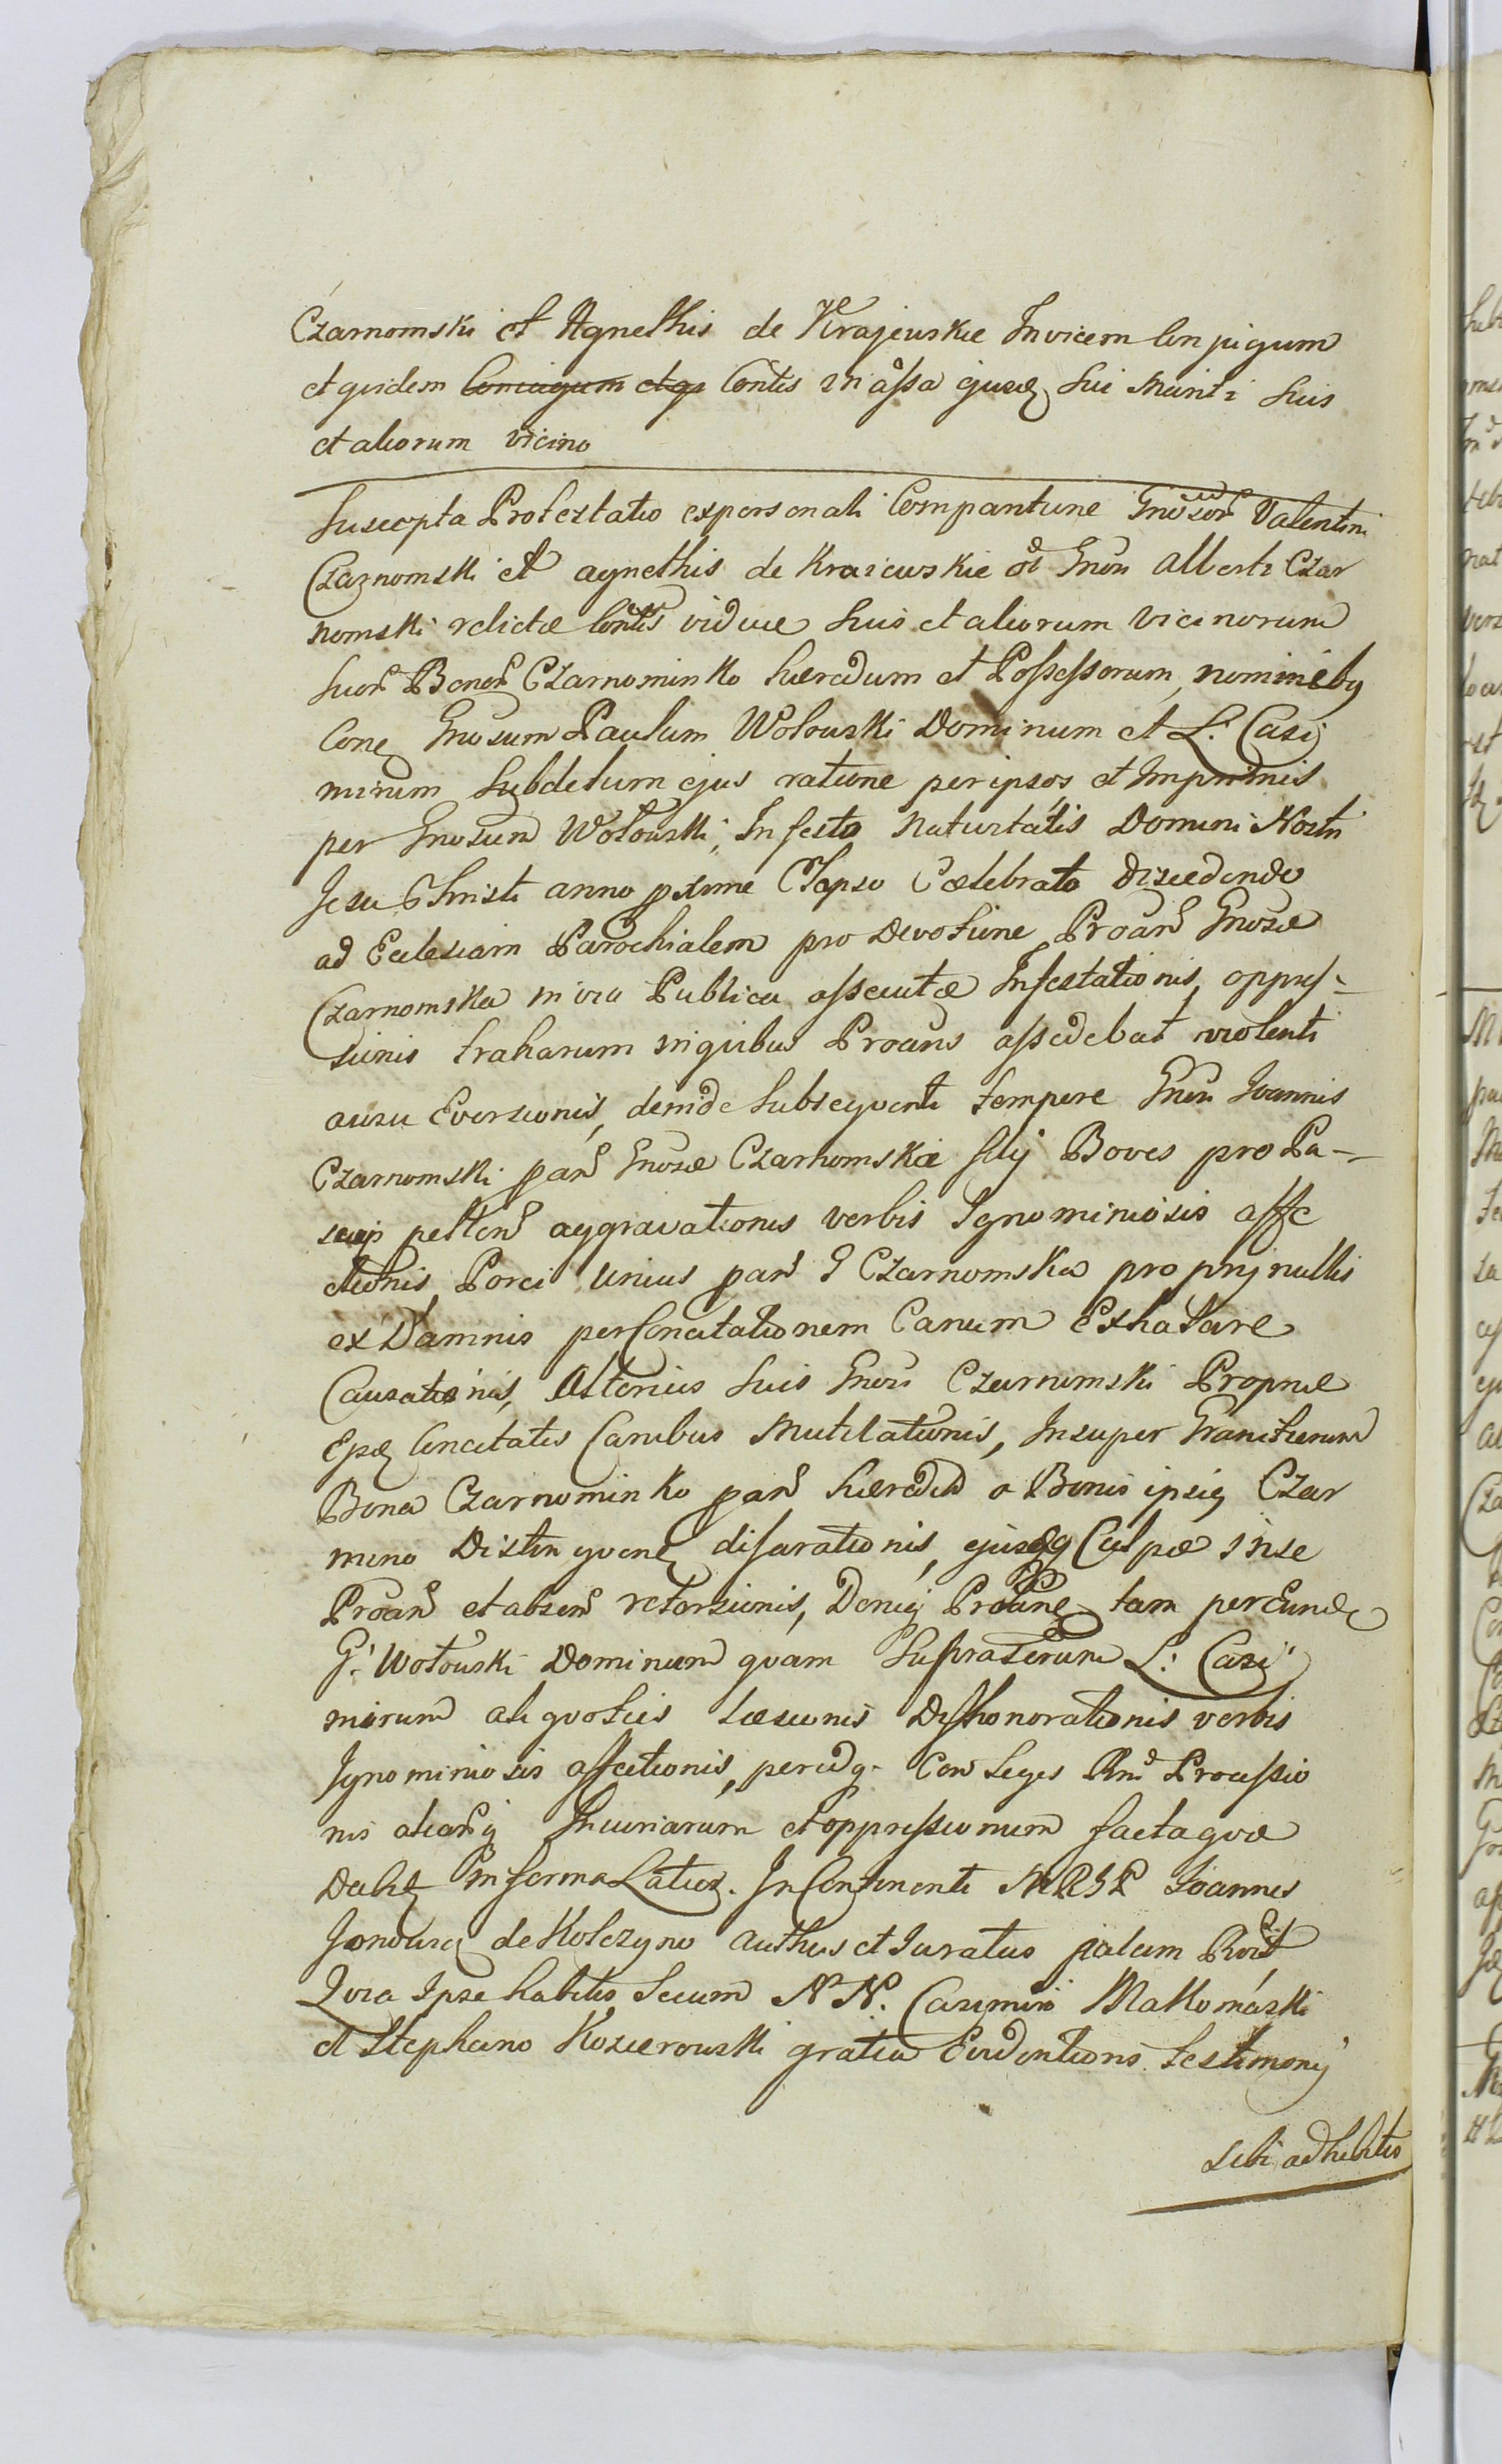 Czarnomski et Agnethis de Krajewskie Invicem Conjugum
et quidem Coniugum etq Contis in assa ejusdę sui Mariti suis
et aliorum vicino
Suscepta Protestatio expersonali Compantione Gnosor Valentini
Czarnomski et agnethis de Kraiewskie ol Gnosi Alberti Czar
nomski relictæ Contis viduæ suis et aliorum vicinorum
suor Bonor Czarnominko hæredum et Possessorum nominiby
Conę Gnosum Paulum Wołowski Dominum et L: Casi
mirum Subdetum ejus ratione per ipsos et Imprimis
per Gnosum Wołowski, In festo Nativitatis Domini Nostri
Jesu Christi anno pxime Elapso Cælebrato discedendo
ad Eclesiam Parochialem pro Devotione Proan Gnosæ
Czarnomska in via Publica assecutæ Infestationis, oppres-
sionis traharum in quibus Proans assedebat violenti
ausu Eversionis, deinde subsequenti tempore Gnosi Joannis
Czarnomski pan Gnosæ Czarnomska filij Boves pro Pa-
scuis pelten aggravationis verbis Ignominiosis affe
ctionis, Porci unius pan G Czarnomska proprij nullis
ex Damnis per Concitationem Canum Exhatare
Causationis, Alterius suis Gnosi Czarnomski Propriæ
Epdę Concitatis Canibus Mutilationis, Insuper Granitierum
Bona Czarnominko pan hæredum a Bonis ipsiq Czar
mino Distinguenę disarationis, ejusdęq Culpæ in se
Proan et absen retorsionis, Deniq Proanę tam per Eundę
G: Wołowski Dominum quam Supraterum L: Casi
mirum aliquoties Læsionis Dishonorationis verbis
Ignominiosis affectionis, peridq. Con Leges Rni Processio
nis aliarq Iniuriarum et oppressionum facta quæ
Dabit in forma Latior. In Continenti MRGP Joannes
Jondura de Kolczyno authus et Juratus palam Rvit
Quia Ipse habitis Secum N N. Casimiro Makomaski
et Stephano Kozierowski gratia Evidentioris testimonij
sibi adhibitis